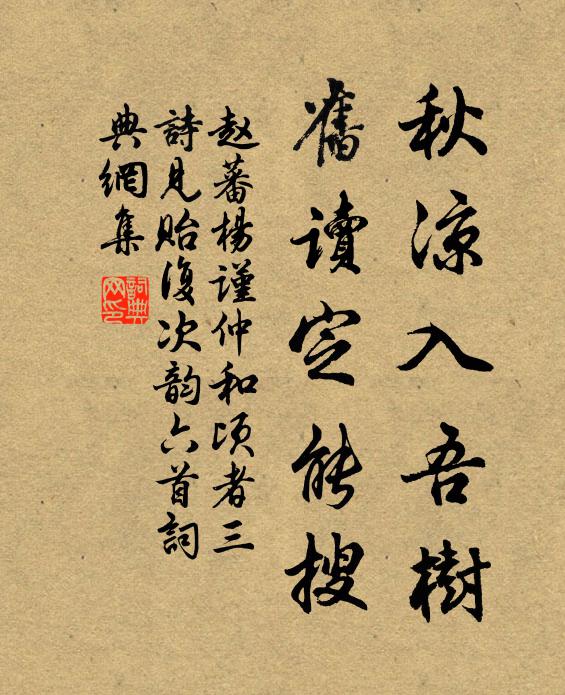 秋涼入吾樹
舊讀定能搜
赵蕃楊謹仲和頃者三
詩見貽復次韵六首詞
典網集
詞典
网印